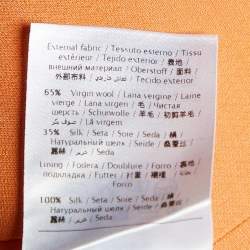 External fabric / Tessuto esterno / Tissu
extérieur / Tejido exterior / 表地 /
внешний материал / Oberstoff / 面料 /
外部布料 / قماش خارجي / Tecido exterior
65% Virgin wool / Lana vergine / Laine
vierge / Lana virgen / 毛 / Чистая
шерсть / Schurwolle / 羊毛 / 初剪羊毛
/ صوف بكر / Lã virgem
35% Silk / Seta / Soie / Seda / 絹 /
Натуральный шелк / Seide / 桑蚕丝 /
蠶絲 / حرير / Seda
Lining / Fodera / Doublure / Forro / 裏地
/ подкладка / Futter / 衬里 / 襯裡 /
/ Forro
100% Silk / Seta / Soie / Seda / 絹 /
Натуральный шелк / Seide / 桑蚕丝 /
蠶絲 / حرير / Seda